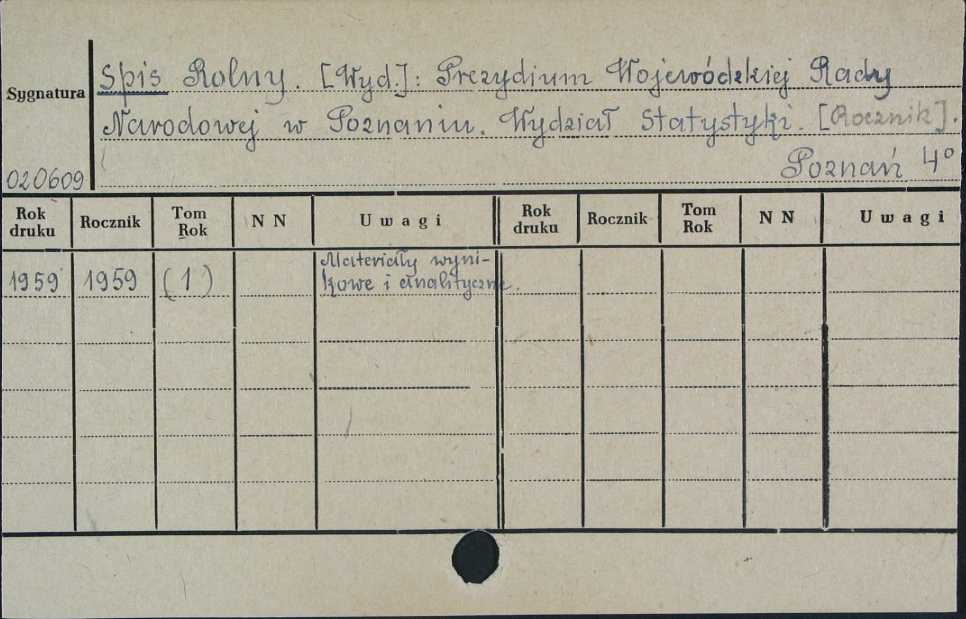 Sygnatura
Spis Rolny. [Wyd.]: Prezydium Wojewódzkiej Rady
Narodowej w Poznaniu. Wydział Statystyki. [Rocznik].
020609
Poznań 4°
Rok druku Rocznik Tom Rok N N Uwagi Rok druku Rocznik Tom Rok N N Uwagi
1959 1959 (1) Materiały wyni-
kowe i analityczne.